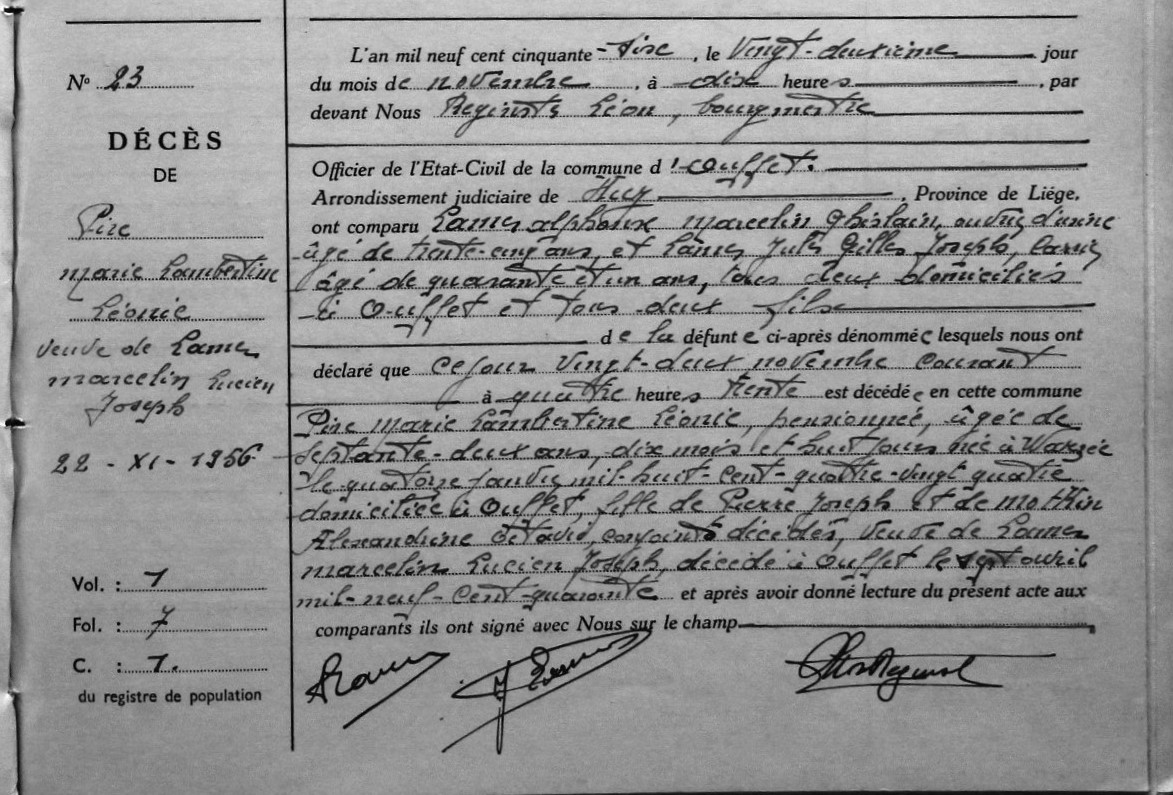 N° 23
DÉCÈS
DE
Pire
Marie Lambertine
Léonie
veuve de Lamer
Marcelin Lucien
Joseph
22 - XI - 1956
Vol. : 1
Fol. : 7
C. : 1.
du registre de population
L'an mil neuf cent cinquante - six , le vingt-deuxième jour
du mois de novembre , à dix heures , par
devant Nous Reginster Léon, bourgmestre
Officier de l'Etat-Civil de la commune d'Ouffet.
Arrondissement judiciaire de Huy , Province de Liège,
ont comparu Lamer Alphonse Marcelin Ghislain, ouvrier d'usine
âgé de trente-cinq ans, et Lamer Jules Gilles Joseph,
âgé de quarante et un ans, tous deux domiciliés
à Ouffet et tous deux fils
de la défunte ci-après dénommée lesquels nous ont
déclaré que ce jour vingt-deux novembre courant
à quatre heures trente est décédée en cette commune
Pire Marie Lambertine Léonie, pensionnée, âgée de
septante-deux ans, dix mois et huit jours née à Warzée
le quatorze janvier mil-huit-cent-quatre-vingt quatre
domiciliée à Ouffet, fille de Pierre Joseph et de Mothin
Alexandrine Octavie, conjoints décédés, veuve de Lamer
Marcelin Lucien Joseph, décédé à Ouffet le sept avril
mil-neuf-cent-quarante et après avoir donné lecture du présent acte aux
comparants ils ont signé avec Nous sur le champ